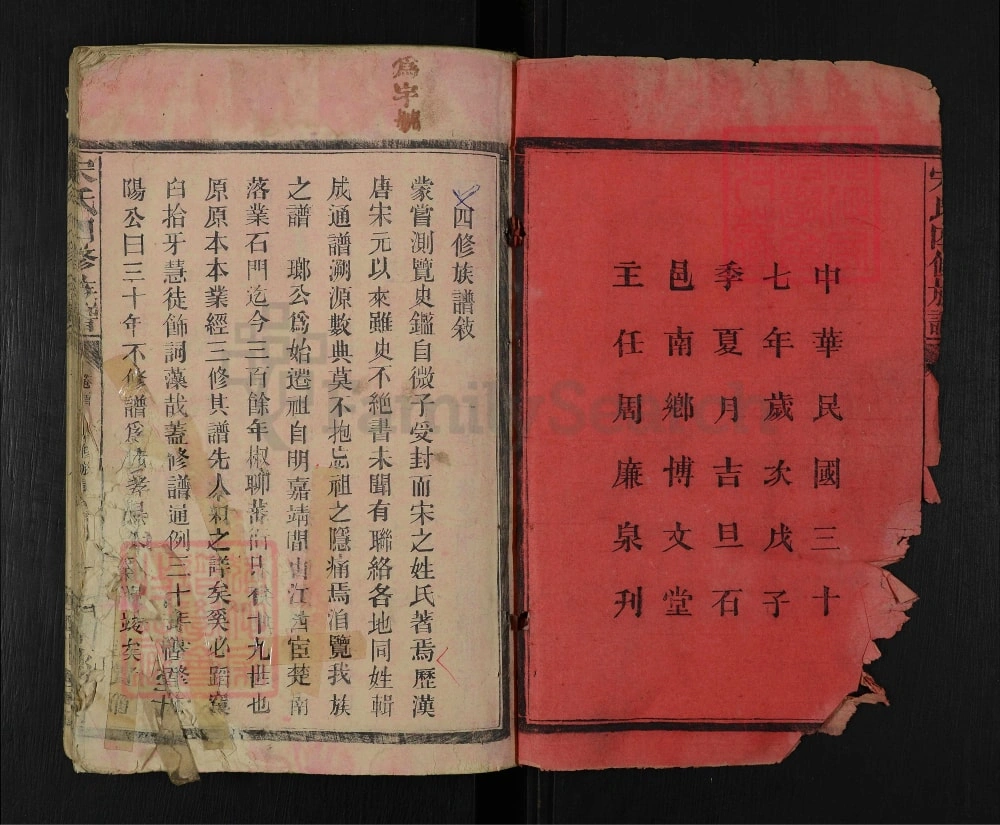 中華民國三十
七年歲次戊子
季夏月吉旦石
邑南鄉博文堂
主任周廉泉刊
宋氏四修族譜
爲字號
四修族譜敘
蒙嘗測覽史鑑自微子受封而宋之姓氏著焉歷漢
唐宋元以來雖史不絕書未聞有聯絡各地同姓輯
成通譜溯源數典莫不抱忘祖之隱痛焉洎覽我族
之譜 瑯公爲始遷祖自明嘉靖間由江西宦楚南
落業石門迄今三百餘年椒聊蕃衍只有十九世也
原原本本業經三修其譜先人知之詳矣奚必蹈襲
臼拾牙慧徒飾詞藻哉蓋修譜通例三十年當修
陽公曰三十年不修譜爲不孝 矣
宋氏四修族譜
FamilySearch